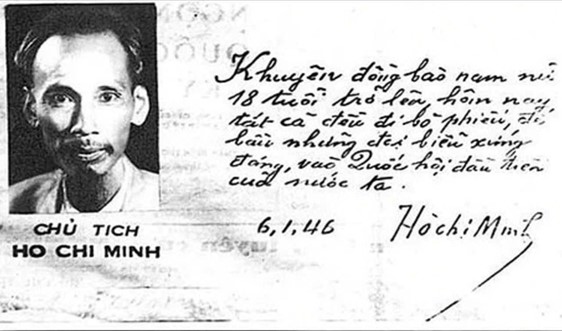 CHỦ TỊCH
HO CHI MINH
Khuyên đồng bào nam nữ
18 tuổi trở lên, hôm nay
tất cả đều đi bỏ phiếu, để
bầu những đại biểu xứng
đáng, vào Quốc hội đầu tiên
của nước ta.
6.1.46 Hồ Chí Minh